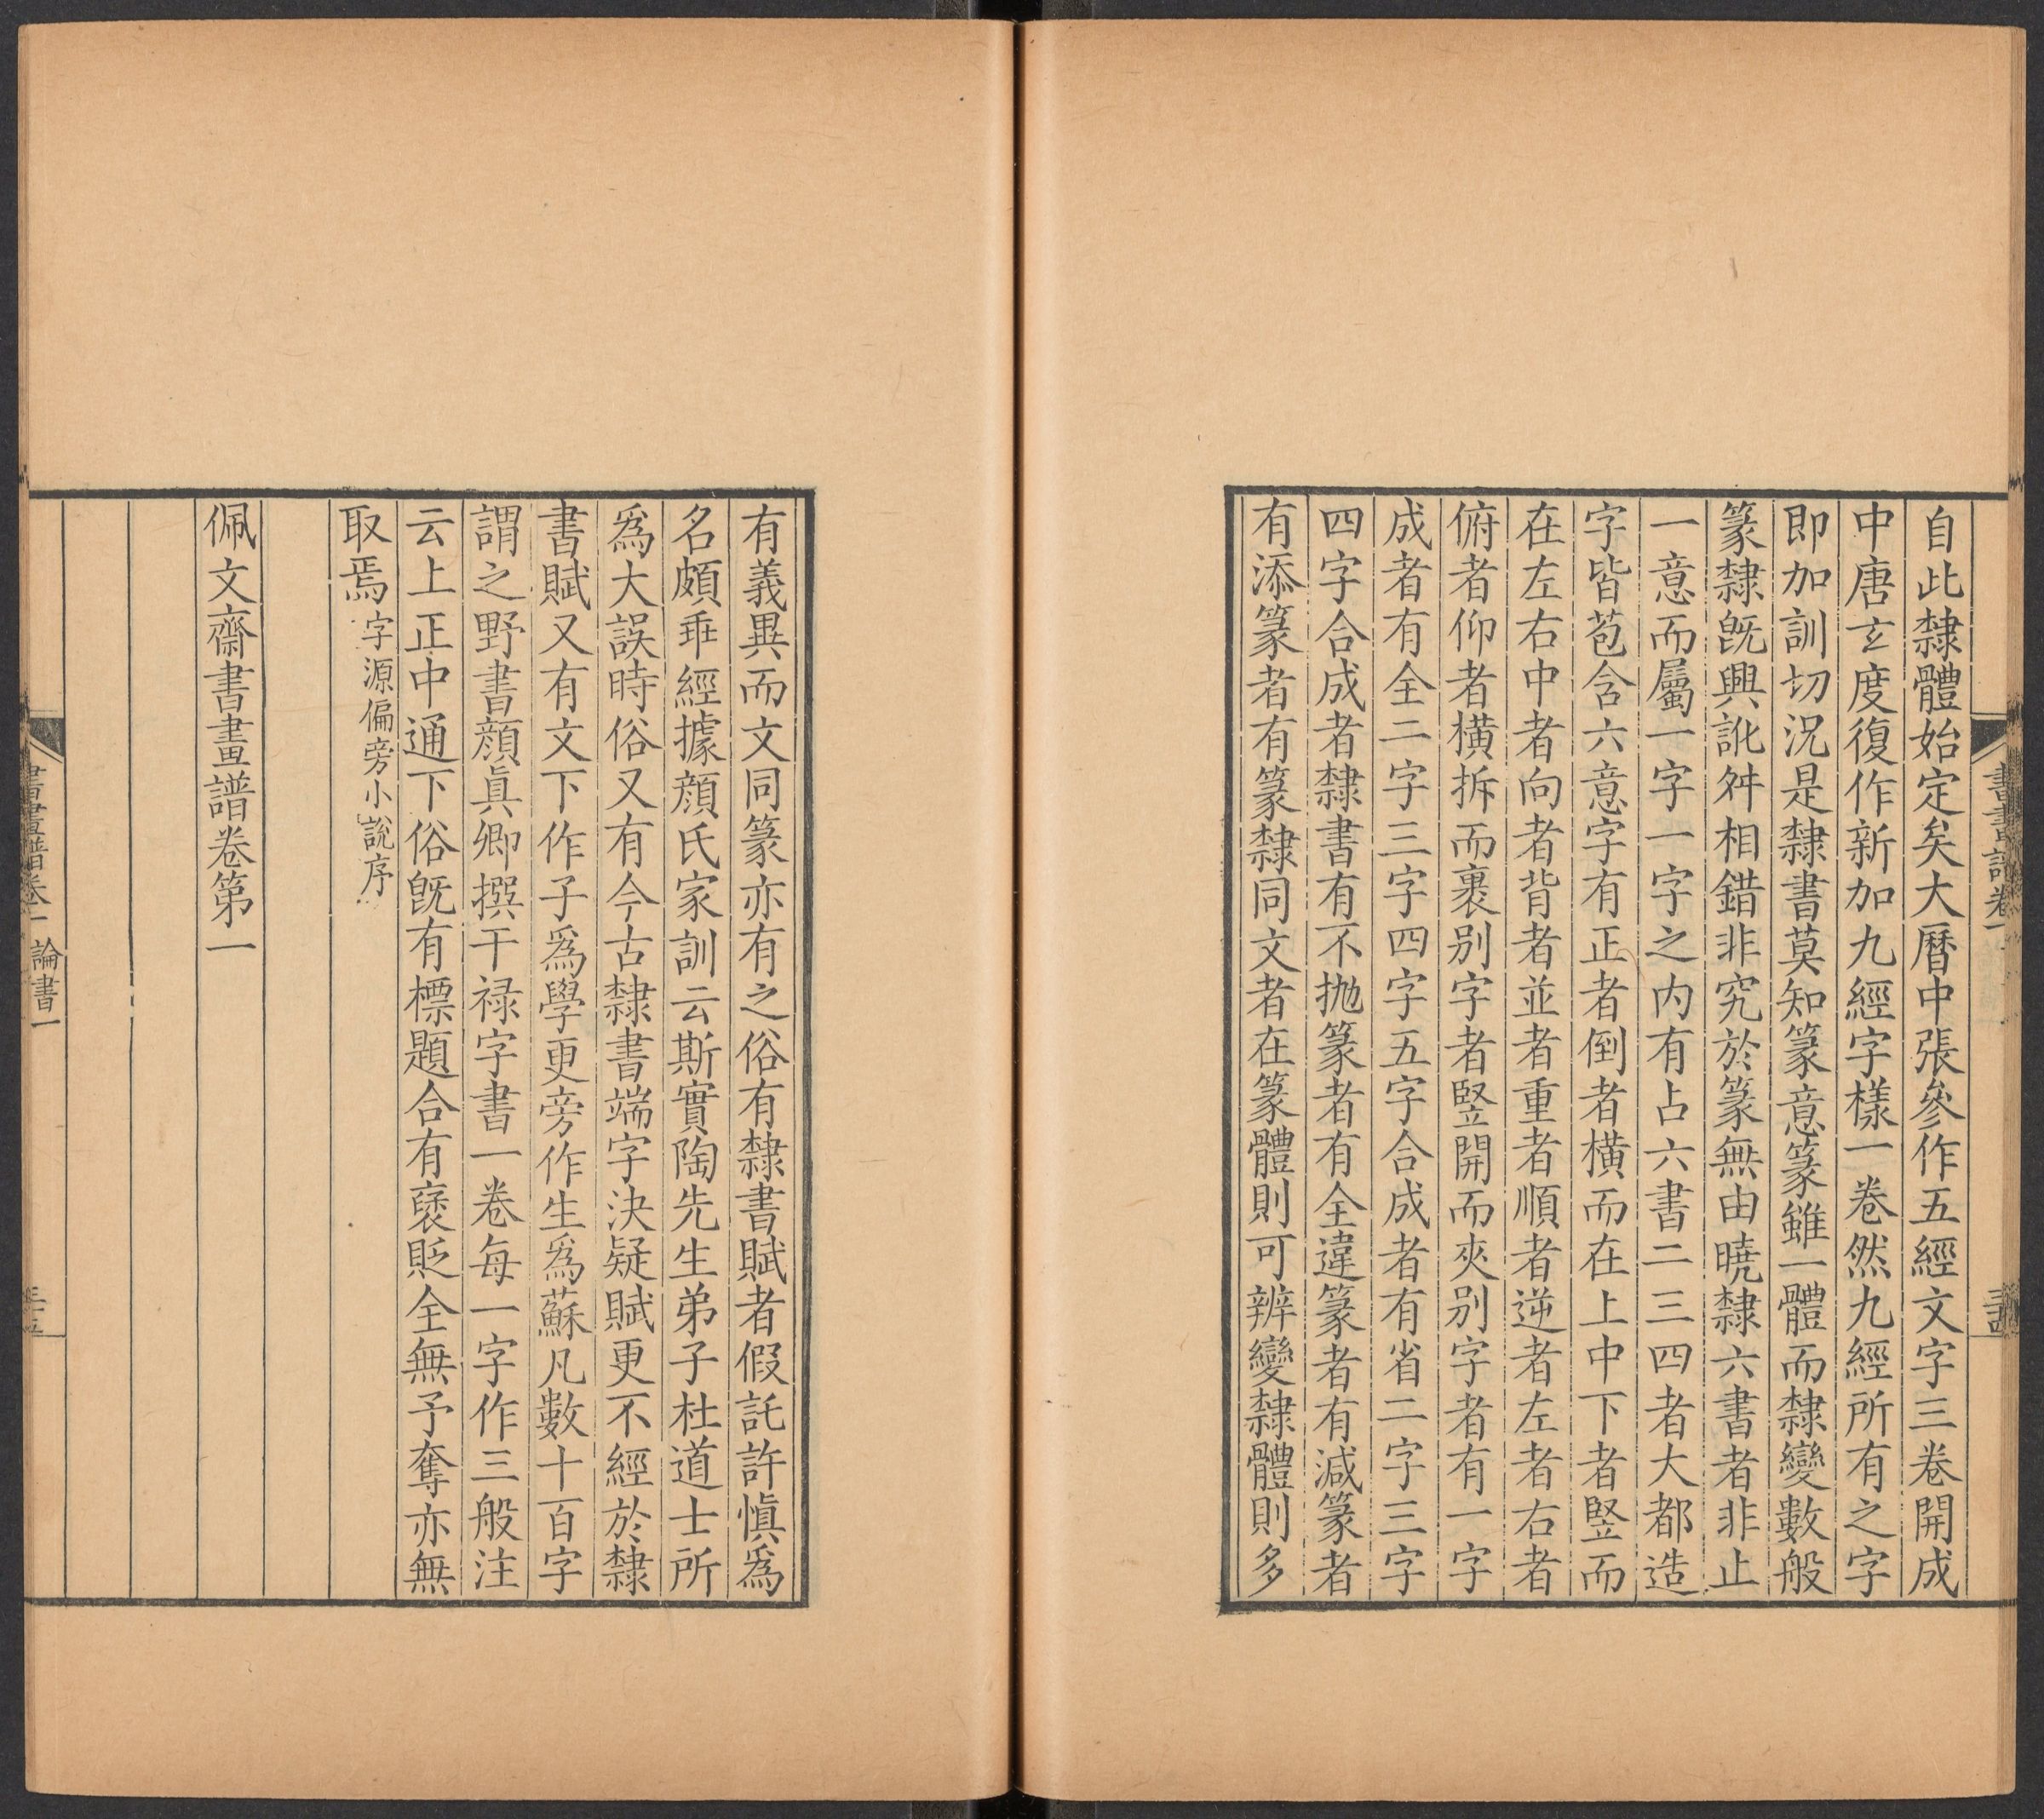 書畫譜卷一
三十四
自此隸體始定矣大曆中張參作五經文字三卷開成
中唐玄度復作新加九經字樣一卷然九經所有之字
即加訓切況是隸書莫知篆意篆雖一體而隸變數般
篆隸旣興訛舛相錯非究於篆無由曉隸六書者非止
一意而屬一字一字之內有占六書二三四者大都造
字皆苞含六意字有正者倒者橫而在上中下者竪而
在左右中者向者背者並者重者順者逆者左者右者
俯者仰者橫拆而裹别字者竪開而夾别字者有一字
成者有全二字三字四字五字合成者有省二字三字
四字合成者隸書有不抛篆者有全違篆者有減篆者
有添篆者有篆隸同文者在篆體則可辨變隸體則多
有義異而文同篆亦有之俗有隸書賦者假託許愼爲
名頗乖經據顏氏家訓云斯實陶先生弟子杜道士所
爲大誤時俗又有今古隸書端字決疑賦更不經於隸
書賦又有文下作子爲學更旁作生爲蘇凡數十百字
謂之野書顏眞卿撰干禄字書一卷每一字作三般注
云上正中通下俗旣有標題合有襃貶全無予奪亦無
取焉字源偏旁小說序
佩文齋書畫譜卷第一
書畫譜卷一 論書一
三十五